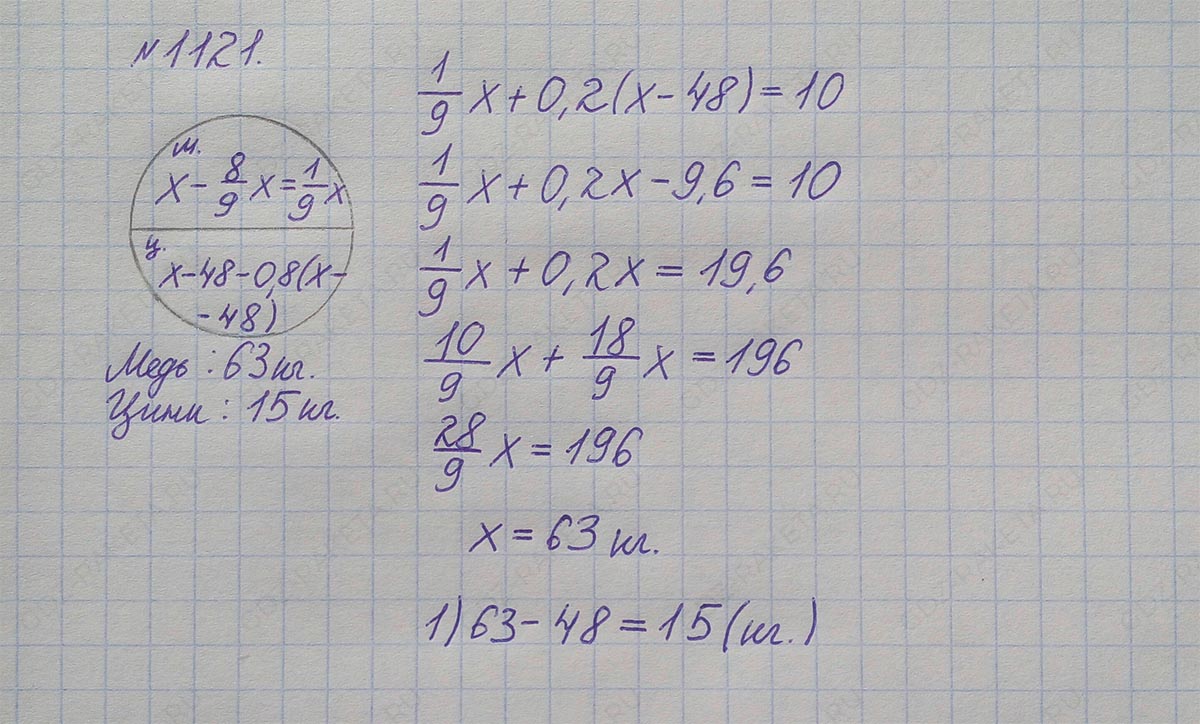 №1121.
м.
x - 8/9 x = 1/9 x
ц.
x - 48 - 0,8(x -
- 48)
Медь: 63 кг.
Цинк: 15 кг.
1/9 x + 0,2(x - 48) = 10
1/9 x + 0,2x - 9,6 = 10
1/9 x + 0,2x = 19,6
10/9 x + 18/9 x = 196
28/9 x = 196
x = 63 кг.
1) 63 - 48 = 15 (кг.)